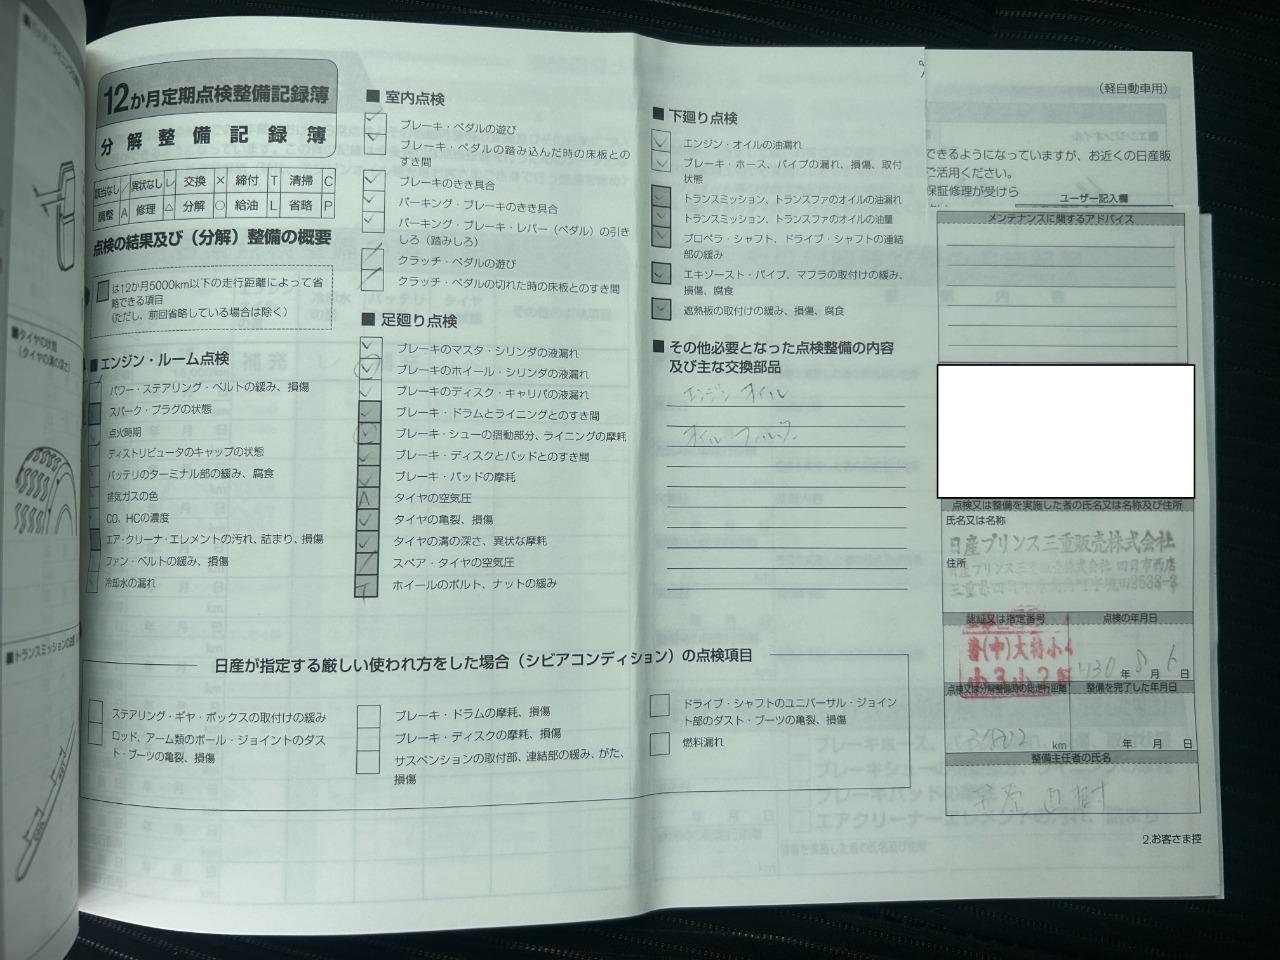 12か月定期点検整備記録簿
分解整備記録簿
該当なし / 異状なし レ 交換 × 締付 T 清掃 C
調整 A 修理 △ 分解 ○ 給油 L 省略 P
点検の結果及び（分解）整備の概要
は12か月5000km以下の走行距離によって省
略できる項目
（ただし、前回省略している場合は除く）
■エンジン・ルーム点検
パワー・ステアリング・ベルトの緩み、損傷
スパーク・プラグの状態
点火時期
ディストリビュータのキャップの状態
バッテリのターミナル部の緩み、腐食
排気ガスの色
CO、HCの濃度
エア・クリーナ・エレメントの汚れ、詰まり、損傷
ファン・ベルトの緩み、損傷
冷却水の漏れ
■室内点検
ブレーキ・ペダルの遊び
ブレーキ・ペダルの踏み込んだ時の床板との
すき間
ブレーキのきき具合
パーキング・ブレーキのきき具合
パーキング・ブレーキ・レバー（ペダル）の引き
しろ（踏みしろ）
クラッチ・ペダルの遊び
クラッチ・ペダルの切れた時の床板とのすき間
■足廻り点検
ブレーキのマスタ・シリンダの液漏れ
ブレーキのホイール・シリンダの液漏れ
ブレーキのディスク・キャリパの液漏れ
ブレーキ・ドラムとライニングとのすき間
ブレーキ・シューの摺動部分、ライニングの摩耗
ブレーキ・ディスクとパッドとのすき間
ブレーキ・パッドの摩耗
タイヤの空気圧
タイヤの亀裂、損傷
タイヤの溝の深さ、異状な摩耗
スペア・タイヤの空気圧
ホイールのボルト、ナットの緩み
■下廻り点検
エンジン・オイルの油漏れ
ブレーキ・ホース、パイプの漏れ、損傷、取付
状態
トランスミッション、トランスファのオイルの油漏れ
トランスミッション、トランスファのオイルの油量
プロペラ・シャフト、ドライブ・シャフトの連結
部の緩み
エキゾースト・パイプ、マフラの取付けの緩み、
損傷、腐食
遮熱板の取付けの緩み、損傷、腐食
■その他必要となった点検整備の内容
及び主な交換部品
エンジン オイル
日産が指定する厳しい使われ方をした場合（シビアコンディション）の点検項目
ステアリング・ギヤ・ボックスの取付けの緩み
ロッド、アーム類のボール・ジョイントのダス
ト・ブーツの亀裂、損傷
ブレーキ・ドラムの摩耗、損傷
ブレーキ・ディスクの摩耗、損傷
サスペンションの取付部、連結部の緩み、がた、
損傷
ドライブ・シャフトのユニバーサル・ジョイン
ト部のダスト・ブーツの亀裂、損傷
燃料漏れ
（軽自動車用）
できるようになっていますが、お近くの日産販
ご活用ください。
保証修理が受けら
ユーザー記入欄
メンテナンスに関するアドバイス
点検又は整備を実施した者の氏名又は名称及び住所
氏名又は名称
日産プリンス三重販売株式会社
住所
日産プリンス三重販売株式会社 四日市西店
認証又は指定番号 点検の年月日
30年 8月 6日
点検又は分解整備時の総走行距離 整備を完了した年月日
km 年 月 日
整備主任者の氏名
2.お客さま控
■タイヤの状態
（タイヤの溝の深さ）